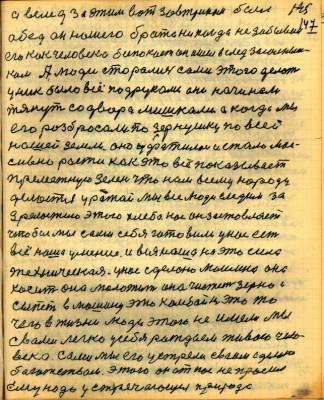 а вслед за этим вот завтрика был 145
обед он нашего братка никогда не забывал 147
его как человека
кам А люди старались сами этого делат
у них было всё под руками они начинали
тянут со двора мешками а когда мы
его розбросали по зернушку по всей
нашей земли оно и стало мас
сивно рости как это всё показывает
прелестную зелен что нам всему народу
делится урожай мы все люди следим за
зрелостию этого хлеба нас он заставляет
чтобы мы сами себя готовили у нас ест
всё наша умение. и вся наша на это сила
техническая. у нас сделано машина она
косит она молотит она чистет зерно и
сыпет в машину это комбайн это то
чего в жизни люди этого не имели мы
с вами легко у себя рождаем живого чело
века. Сами мы его устрели своим сделано
богатством. Этого он от нас не просил
ему надо устречающия природа